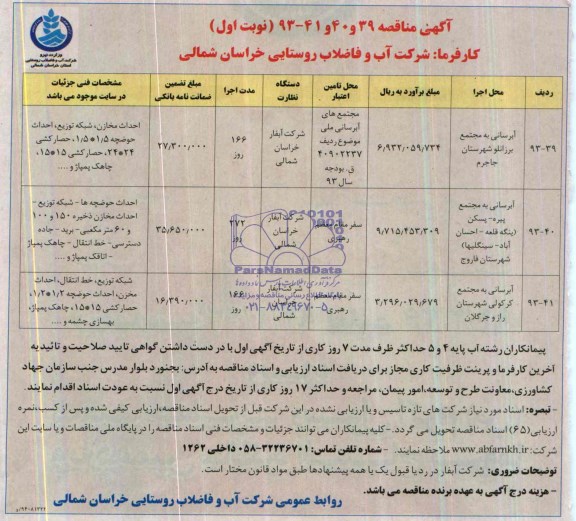 آگهی مناقصه ۳۹ و ۴۰ و ۴۱-۹۳ (نوبت اول)
کارفرما: شرکت آب و فاضلاب روستایی خراسان شمالی
وزارت نیرو
شرکت آب و فاضلاب روستایی
استان خراسان شمالی
ردیف
محل اجرا
مبلغ برآورد به ریال
محل تامین اعتبار
دستگاه نظارت
مدت اجرا
مبلغ تضمین ضمانت نامه بانکی
مشخصات فنی جزئیات در سایت موجود می باشد
۹۳-۳۹
آبرسانی به مجتمع
برزانلو شهرستان
جاجرم
۶,۹۳۲,۰۵۹,۷۳۴
مجتمع های
آبرسانی ملی
موضوع ردیف
۴۰۹۰۲۲۳۷
ق. بودجه
سال ۹۳
شرکت آبفار
خراسان
شمالی
۱۶۶
روز
۲۷/۳۰۰/۰۰۰
احداث مخازن، شبکه توزیع، احداث
حوضچه ۱/۵*۱/۵، احداث
۲۴*۲۴، حصار کشی ۱۵*۱۵،
چاهک پمپاژ و ....
۹۳-۴۰
آبرسانی به مجتمع
پیره- پسکن
(ینگه قلعه - احسان
آباد- سینگلیها)
شهرستان فاروج
۹/۷۱۵,۴۵۳,۳۰۹
سفر مقام معظم
رهبری
شرکت آبفار
خراسان
شمالی
۲۷۲
روز
۳۵,۶۵۰/۰۰۰
احداث حوضچه ها - شبکه توزیع -
احداث مخازن ذخیره ۱۵۰ و ۱۰۰
و ۶۰ متر مکعبی- برید - جاده
دسترسی - خط انتقال - چاهک پمپاژ
- اتاقک پمپاژ و ....
۹۳-۴۱
آبرسانی به مجتمع
کرکولی شهرستان
راز و جرگلان
۳/۲۹۶,۰۲۹,۶۷۹
سفر مقام معظم
رهبری
شرکت آبفار
خراسان
شمالی
۱۶۶
روز
۱۶/۳۹۰/۰۰۰
شبکه توزیع، خط انتقال، احداث
مخزن، احداث حوضچه ۱/۲*۱/۲،
حصار کشی ۱۵*۱۵، چاهک پمپاژ،
بهسازی چشمه و ....
ParsNamadData
۰۲۱-۸۸۳۴۹۶۷۰-۵
پیمانکاران رشته آب پایه ۴ و ۵ حداکثر ظرف مدت ۷ روز کاری از تاریخ آگهی اول با در دست داشتن گواهی تایید صلاحیت و تائیدیه
آخرین کارفرما و پرینت ظرفیت کاری مجاز برای دریافت اسناد ارزیابی و اسناد مناقصه به آدرس: بجنورد بلوار مدرس جنب سازمان جهاد
کشاورزی، معاونت طرح و توسعه، امور پیمان، مراجعه و حداکثر ۱۷ روز کاری از تاریخ درج آگهی اول نسبت به عودت اسناد اقدام نمایند.
- تبصره: اسناد مورد نیاز شرکت های تازه تاسیس و یا ارزیابی نشده در این شرکت قبل از تحویل اسناد مناقصه، ارزیابی کیفی شده و پس از کسب نمره
ارزیابی (۶۵) اسناد مناقصه تحویل می گردد. - کلیه پیمانکاران می توانند جزئیات و مشخصات فنی اسناد مناقصه را در پایگاه ملی مناقصات و یا سایت این
شرکت: www.abfarnkh.ir ملاحظه نمایند. - شماره تلفن تماس: ۳۲۲۳۶۷۰۱-۰۵۸ داخلی ۱۲۶۲
توضیحات ضروری: شرکت آبفار در رد یا قبول یک یا همه پیشنهادها طبق مواد قانون مختار است.
- هزینه درج آگهی به عهده برنده مناقصه می باشد.
روابط عمومی شرکت آب و فاضلاب روستایی خراسان شمالی